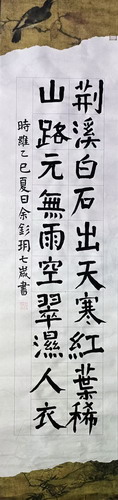 荆溪白石出天寒紅葉稀
山路元無雨空翠濕人衣
時維乙巳夏日余彭玥七歲書